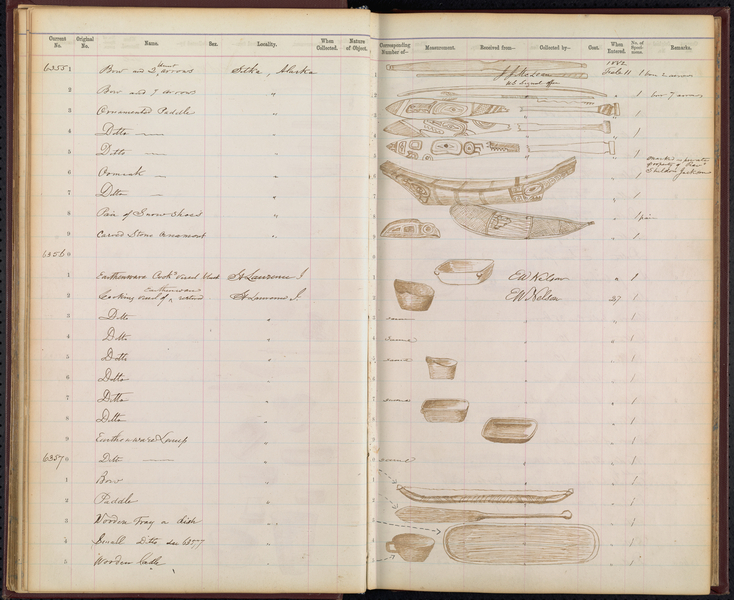 Current No. Original No. Name. Sex. Locality. When Collected. Nature of Object.
6355 1 Bow and 2 Arrows Sitka, Alaska
2 Bow and 7 arrows "
3 Ornamented Paddle "
4 Ditto "
5 Ditto "
6 "
7 Ditto "
8 Pair of Snow Shoes "
9 Carved Stone ornament "
6356 0
1 Earthenware Cook'g vessel St Lawrence I.
2 Cooking vessel of earthenware St Lawrence I.
3 Ditto "
4 Ditto "
5 Ditto "
6 Ditto "
7 Ditto "
8 Ditto "
9 Earthenware Lamp "
6357 0 Ditto "
1 Bow "
2 Paddle "
3 Wooden Tray or dish "
4 Small Ditto see 6377 "
5 Wooden Ladle "
Corresponding Number of— Measurement. Received from— Collected by— Cost. When Entered. No. of Specimens. Remarks.
1882
1 J. J. McLean Feb 11 1 bow 2 arrows
U.S. Signal Off
2 " " 1 bow 7 arrows
3 " 1
4 " 1
5 " 1
marked as private property of Rev Sheldon Jackson
6 " 1
7 " 1
8 " 1 pair
9 " 1
0
1 E W Nelson " 1
2 E W Nelson 27 1
3 same " " 1
4 same " " 1
5 same " " 1
6 " " 1
7 same " " 1
8 " " 1
9 " " 1
0 same " " 1
1 " " 1
2 " " 1
3 " " 1
4 " " 1
5 " " 1